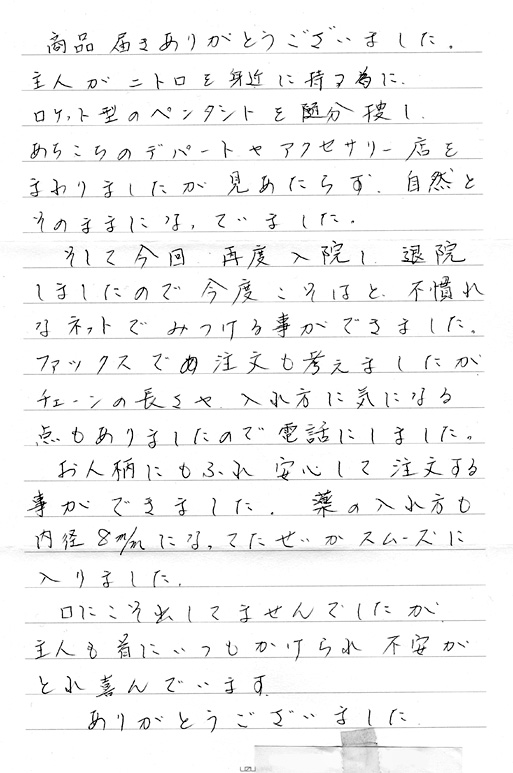 商品届きありがとうございました。
主人がニトロを身近に持つ為に、
ロケット型のペンダントを随分捜し、
あちこちのデパートやアクセサリー店を
まわりましたが見あたらず、自然と
そのままになっていました。
そして今回、再度入院し、退院
しましたので今度こそはと、不慣れ
なネットでみつける事ができました。
ファックスでの注文も考えましたが、
チェーンの長さや、入れ方に気になる
点もありましたので電話にしました。
お人柄にもふれ安心して注文する
事ができました。薬の入れ方も
内径8m/mになってたせいかスムーズに
入りました。
口にこそ出してませんでしたが、
主人も首にいつもかけられ不安が
とれ喜んでいます。
ありがとうございました。